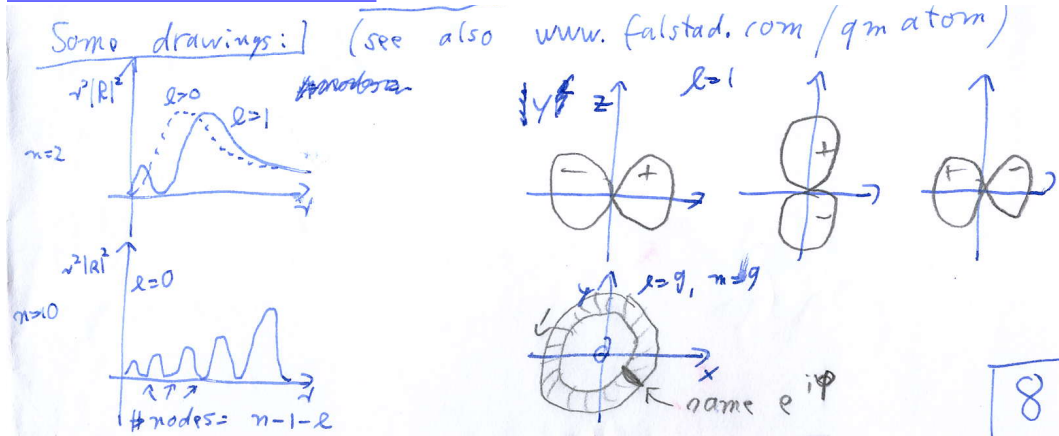 Some drawings: (see also www.falstad.com/qmatom)
r²|R|²
l=0
l=1
n=2
r
|Y| z
l=1
- +
+
-
+ -
r²|R|²
l=0
n=10
r
#nodes= n-1-l
y
l=9, m=9
x
name e^iφ
8